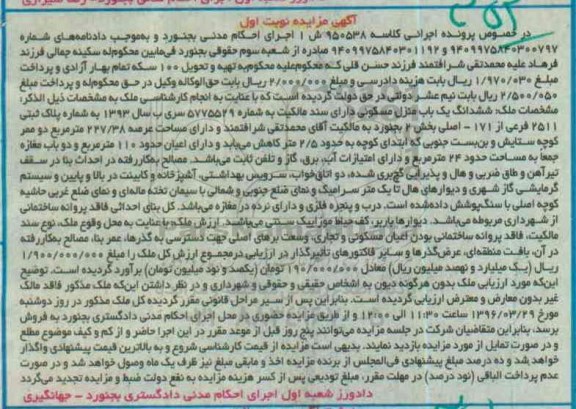 آگهی مزایده نوبت اول
در خصوص پرونده اجرائی کلاسه ۹۵۰۵۳۸ ش ۱ اجرای احکام مدنی بجنورد و به‌موجب دادنامه‌های شماره
۹۴۰۹۹۷۵۸۴۰۳۰۰۷۹۷ و ۹۴۰۹۹۷۵۸۴۰۳۰۱۱۹۲ صادره از شعبه سوم حقوقی بجنورد فی‌مابین محکوم‌له سکینه جمالی فرزند
فرهاد علیه محمدتقی شرافتمند فرزند حسن قلی که محکوم‌علیه محکوم به تهیه و تحویل ۱۰۰ سکه تمام بهار آزادی و پرداخت
مبلغ ۱/۹۷۰/۰۳۰ ریال بابت هزینه دادرسی و مبلغ ۲/۰۰۰/۰۰۰ ریال بابت حق‌الوکاله وکیل در حق محکوم‌له و پرداخت مبلغ
۲/۵۰۰/۰۵۰ ریال بابت نیم عشر دولتی در حق دولت گردیده است که با عنایت به انجام کارشناسی ملک به مشخصات ذیل الذکر:
مشخصات ملک: ششدانگ یک باب منزل مسکونی دارای سند مالکیت به شماره ۵۷۷۵۵۲۹ سری ب سال ۱۳۹۳ به شماره پلاک ثبتی
۲۵۱۱ فرعی از ۱۷۱ - اصلی بخش ۲ بجنورد به مالکیت آقای محمدتقی شرافتمند و دارای مساحت عرصه ۲۲۷/۳۸ مترمربع دو ممر
کوچه ستایش و بن‌بست جنوبی که ابتدای کوچه به حدود ۲/۵ متر کاهش می‌یابد و دارای اعیان حدود ۱۱۰ مترمربع و دو باب مغازه
جمعا به مساحت حدود ۲۴ مترمربع و دارای امتیازات آب، برق، گاز و تلفن ثابت می‌باشد. مصالح بکاررفته در احداث بنا در سقف
تیرآهن و طاق ضربی و هال و پذیرایی گچبری شده، دو اتاق‌خواب، سرویس بهداشتی، آشپزخانه و کابینت در بالا و پایین و سیستم
گرمایشی گاز شهری و دیوارهای هال تا یک متر سرامیک و نمای ضلع جنوبی و شمالی با سیمان تخته ماله‌ای و نمای ضلع غربی حاشیه
کوچه اصلی با سنگ‌پوشش داده‌شده است. درب و پنجره فلزی و دارای نرده در مغازه می‌باشد. کل بنای احداثی فاقد پروانه ساختمانی
از شهرداری مربوطه می‌باشد. دیوارها باربر، کف حیاط موزاییک سنتی می‌باشند. ارزش ملک: با عنایت به محل وقوع ملک، نوع سند
مالکیت، فاقد پروانه ساختمانی بودن اعیان مسکونی و تجاری، وسعت برهای اصلی جهت دسترسی به گذرها، عمر بنا، مصالح بکاررفته
در آن، بافت منطقه‌ای، عرض گذرها و سایر فاکتورهای تأثیرگذار در ارزیابی درمجموع ارزش کل ملک را مبلغ ۱/۹۰۰/۰۰۰/۰۰۰
ریال (یک میلیارد و نهصد میلیون ریال) معادل ۱۹۰/۰۰۰/۰۰۰ تومان (یکصد و نود میلیون تومان) برآورد گردیده است. توضیح
این‌که مورد ارزیابی ملک بدون هرگونه دیون به اشخاص حقیقی و حقوقی و شهرداری و در نظر داشتن این‌که ملک مذکور فاقد مالک
غیر بدون معارض و معترض ارزیابی گردیده است. بنابراین پس از سیر مراحل قانونی مقرر گردیده کل ملک مذکور در روز دوشنبه
مورخ ۱۳۹۶/۰۳/۲۹ ساعت ۱۱:۳۰ الی ۱۲:۰۰ و از طریق مزایده حضوری در محل اجرای احکام مدنی دادگستری بجنورد به فروش
برسد، بنابراین متقاضیان شرکت در جلسه مزایده می‌توانند پنج روز قبل از موعد مقرر در این اجرا حاضر و از کم و کیف موضوع مطلع
و در صورت تمایل از مورد مزایده بازدید نمایند. بدیهی است مزایده از قیمت کارشناسی شروع و به بالاترین قیمت پیشنهادی واگذار
خواهد شد و ده درصد مبلغ پیشنهادی فی‌المجلس از برنده مزایده اخذ و مابقی مبلغ نیز ظرف یک ماه وصول خواهد شد و در صورت
عدم پرداخت الباقی (نود درصد) در مهلت مقرر، مبلغ تودیعی پس از کسر هزینه مزایده به نفع دولت ضبط و مزایده تجدید می‌گردد
دادورز شعبه اول اجرای احکام مدنی دادگستری بجنورد - جهانگیری